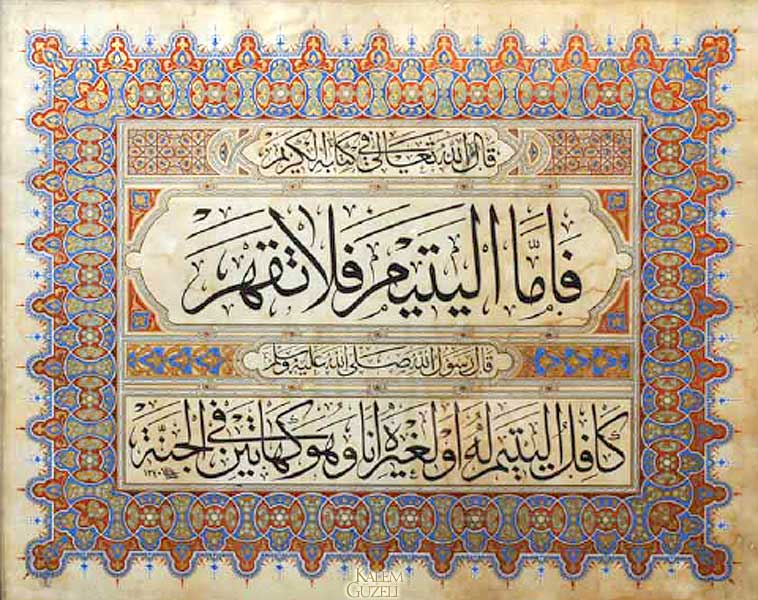 قال الله تعالى في كتابه الكريم
فأما اليتيم فلا تقهر
قال رسول الله صلى الله عليه وسلم
كافل اليتيم له أو لغيره أنا وهو كهاتين في الجنة
KALEM
GÜZELİ